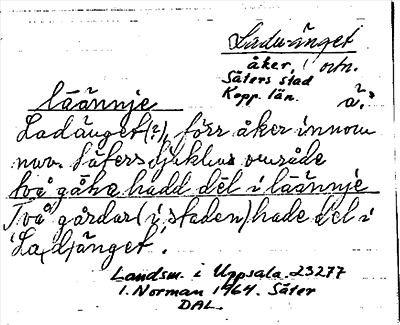 Laduänget
åker, i ortn.
Säters stad
Kopp. län.
läännje
Ladänget(?), förr åker innom
nuv. Säters sjukhus område
två gåka hadd dēl i läännje
Två gårdar (i staden) hade del i
Ladjänget.
Landsm. i Uppsala 23277
I. Norman 1964. Säter
DAL.